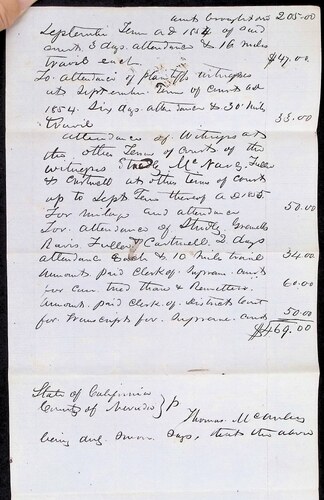 amt brought over 205.00
September Term A D 1854 of said
court 3 days attendance & 16 miles
travel each $47.00
To attendance of Plantiffs witnesses
at September Term of Court AD
1854. Six days attendance & 30 miles
travel 33.00
Attendance of Witnesses at
the other Terms of Courts of the
witnesses Fuller
& Cartnell at other terms of court
up to Sept Term thereof A D 1855
For milage and attendance 50.00
For attendance of
Davis Fuller & Cartnell. 2 days
attendance Each & 10 miles travel 34.00
Amounts paid Clerk of Supreme Court
for tried there & Remitters 60.00
Amount paid Clerk of District Court
for Transcripts for Supreme Court 50.00
$469.00
State of California
County of Nevada
Thomas
being duly sworn says, that the above